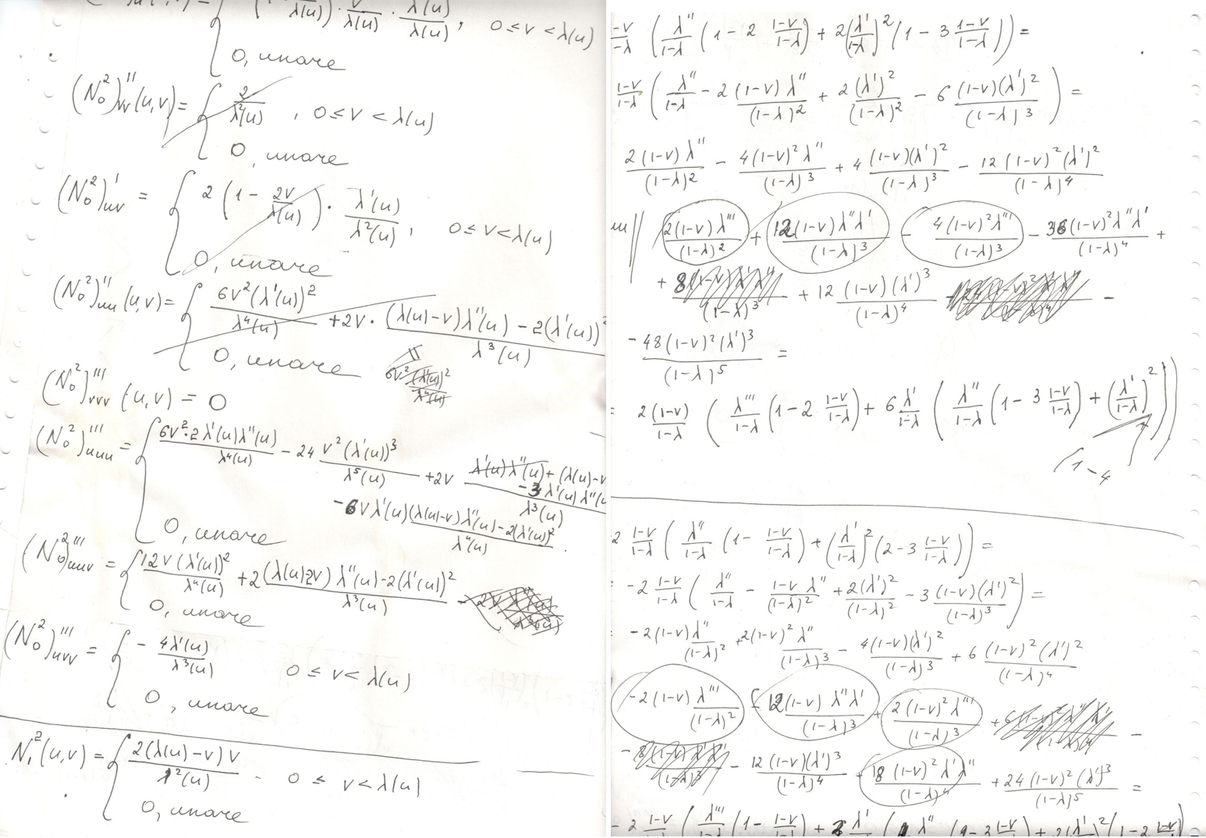 0, иначе
(N₀²)''ᵥᵥ(u,v) = { 2/λ²(u), 0 ≤ v < λ(u)
0, иначе
(N₀²)'ᵤᵥ = { 2(1 - 2v/λ(u)) · λ'(u)/λ²(u), 0 ≤ v < λ(u)
0, иначе
(N₀²)''ᵤᵤ(u,v) = { 6v²(λ'(u))²/λ⁴(u) + 2v · ((λ(u)-v)λ''(u) - 2(λ'(u))²)/λ³(u)
0, иначе
(N₀²)'''ᵥᵥᵥ(u,v) = 0
(N₀²)'''ᵤᵤᵤ = { 6v²·2λ'(u)λ''(u)/λ⁴(u) - 24 v²(λ'(u))³/λ⁵(u) + 2v
- 6vλ'(u) ((λ(u)-v)λ''(u) - 2(λ'(u))²)/λ⁴(u)
0, иначе
(N₀²)'''ᵤᵤᵥ = { 12v(λ'(u))²/λ⁴(u) + 2 ((λ(u)-2v)λ''(u) - 2(λ'(u))²)/λ³(u)
0, иначе
(N₀²)'''ᵤᵥᵥ = { - 4λ'(u)/λ³(u) 0 ≤ v < λ(u)
0, иначе
N₁²(u,v) = { 2(λ(u)-v)v/λ²(u) 0 ≤ v < λ(u)
0, иначе
(1-v)/(1-λ) (λ''/(1-λ) (1 - 2 (1-v)/(1-λ)) + 2(λ'/(1-λ))² (1 - 3 (1-v)/(1-λ))) =
(1-v)/(1-λ) (λ''/(1-λ) - 2(1-v)λ''/(1-λ)² + 2(λ')²/(1-λ)² - 6 (1-v)(λ')²/(1-λ)³) =
2(1-v)λ''/(1-λ)² - 4(1-v)²λ''/(1-λ)³ + 4(1-v)(λ')²/(1-λ)³ - 12(1-v)²(λ')²/(1-λ)⁴
2(1-v)λ'''/(1-λ)² + 12(1-v)λ''λ'/(1-λ)³ - 4(1-v)²λ'''/(1-λ)³ - 36(1-v)²λ''λ'/(1-λ)⁴ +
+ 12(1-v)(λ')³/(1-λ)⁴ -
- 48(1-v)²(λ')³/(1-λ)⁵ =
= 2(1-v)/(1-λ) (λ'''/(1-λ) (1 - 2 (1-v)/(1-λ)) + 6 λ'/(1-λ) (λ''/(1-λ) (1 - 3 (1-v)/(1-λ)) + (λ'/(1-λ))²))
(1 - 4
2 (1-v)/(1-λ) (λ''/(1-λ) (1 - (1-v)/(1-λ)) + (λ'/(1-λ))² (2 - 3 (1-v)/(1-λ))) =
= -2 (1-v)/(1-λ) (λ''/(1-λ) - (1-v)λ''/(1-λ)² + 2(λ')²/(1-λ)² - 3 (1-v)(λ')²/(1-λ)³) =
= -2(1-v)λ''/(1-λ)² + 2(1-v)²λ''/(1-λ)³ - 4(1-v)(λ')²/(1-λ)³ + 6 (1-v)²(λ')²/(1-λ)⁴
-2(1-v)λ'''/(1-λ)² - 12(1-v)λ''λ'/(1-λ)³ + 2(1-v)²λ'''/(1-λ)³ -
- 12(1-v)(λ')³/(1-λ)⁴ + 18(1-v)²λ'λ''/(1-λ)⁴ + 24(1-v)²(λ')³/(1-λ)⁵ =